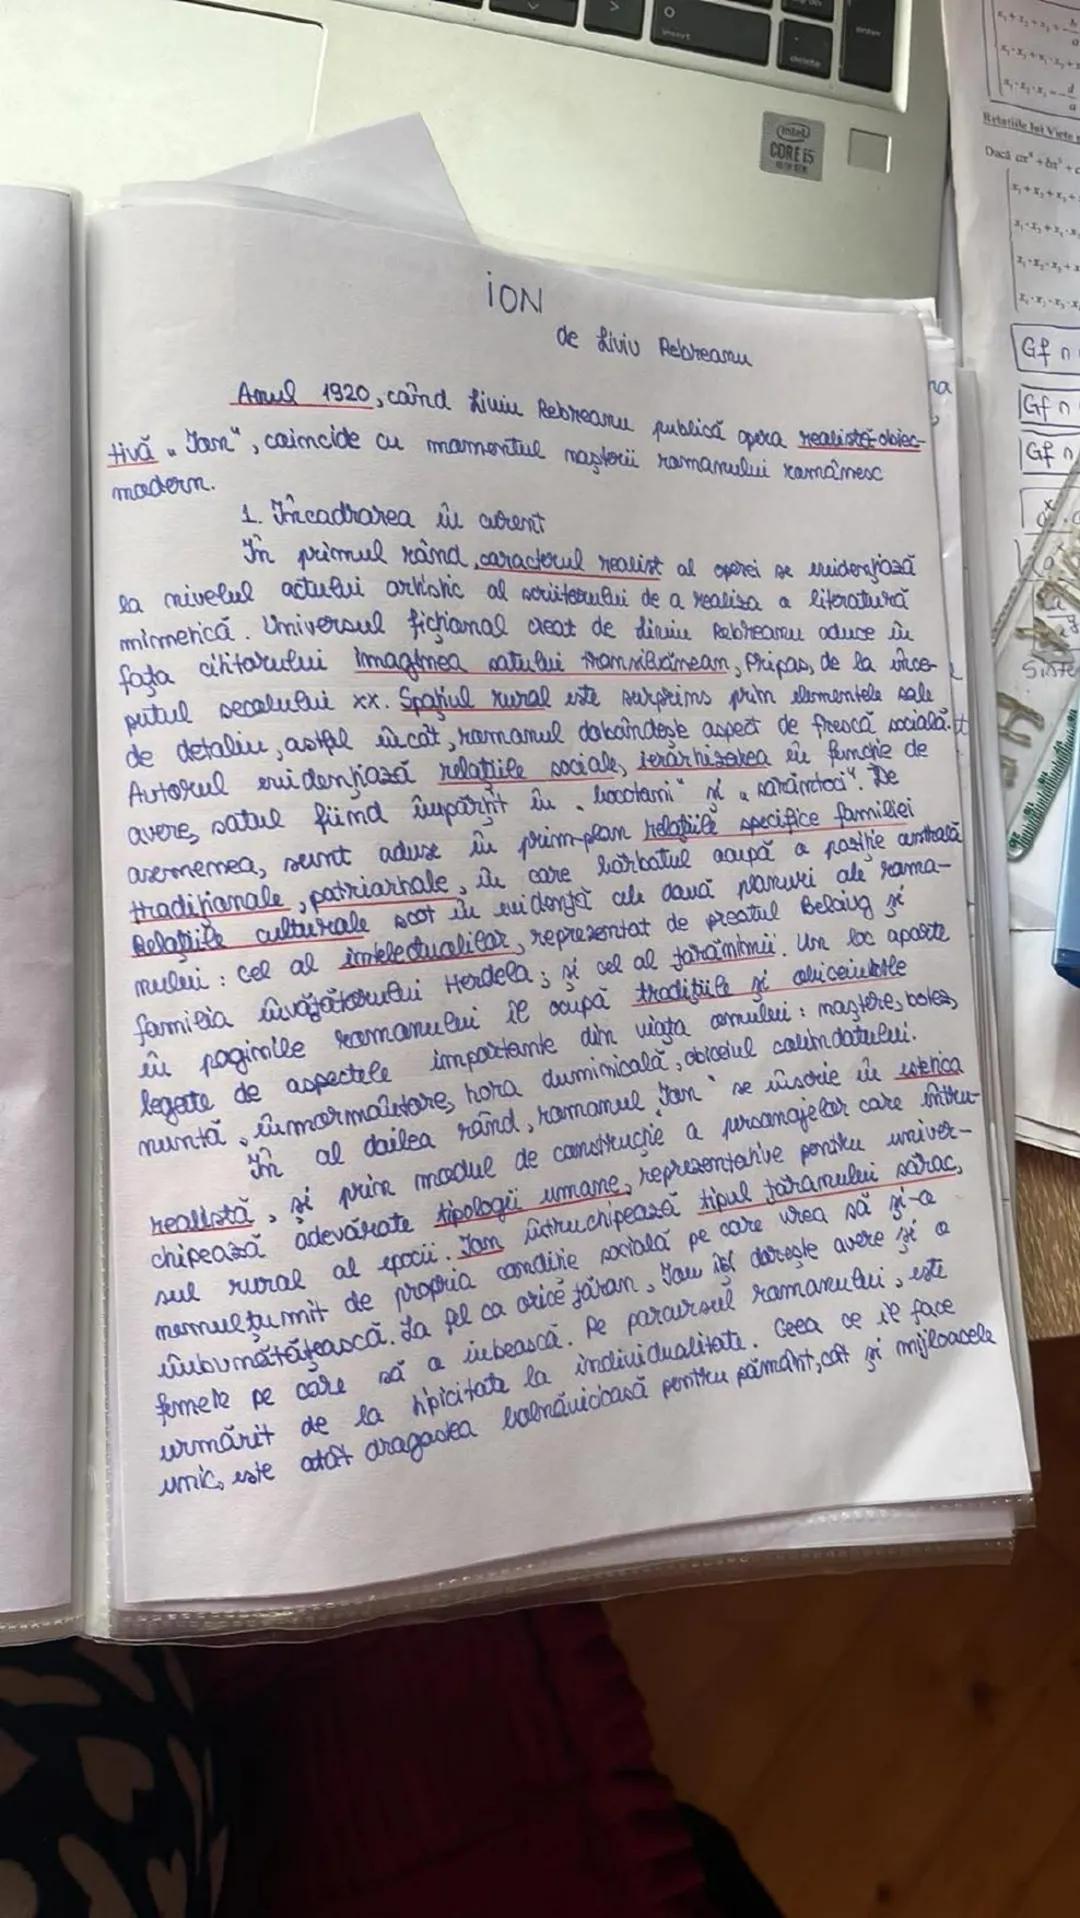 insert
delete
enter
intel
CORE i5
Relatiile lui Viete
Dacă ax⁴ + bx³ + c
Gf ∩
Gf ∩
Gf ∩
na
ION
de Liviu Rebreanu
Anul 1920, când Liviu Rebreanu publică opera realistă obiec-
tivă „Ion", coincide cu momentul nașterii romanului românesc
modern.
1. Încadrarea în curent
În primul rând, caracterul realist al operei se evidențiază
la nivelul actului artistic al scriitorului de a realiza o literatură
mimetică. Universul ficțional creat de Liviu Rebreanu aduce în
fața cititorului imaginea satului transilvănean, Pripas, de la înce-
putul secolului XX. Spațiul rural este surprins prin elementele sale
de detaliu, astfel încât, romanul dobândește aspect de frescă socială.
Autorul evidențiază relațiile sociale, ierarhizarea în funcție de
avere, satul fiind împărțit în „bocotani" și „sărăntoci". De
asemenea, sunt aduse în prim-plan relațiile specifice familiei
tradiționale, patriarhale, în care bărbatul ocupă o poziție centrală
Relațiile culturale scot în evidență cele două planuri ale roma-
nului: cel al intelectualilor, reprezentat de preotul Belciug și
familia învățătorului Herdelea; și cel al țărănimii. Un loc aparte
în paginile romanului îl ocupă tradițiile și obiceiurile
legate de aspectele importante din viața omului: naștere, botez,
nuntă, înmormântare, hora duminicală, obiceiul colindatului.
În al doilea rând, romanul „Ion" se înscrie în estetica
realistă, și prin modul de construcție a personajelor care întru-
chipează adevărate tipologii umane, reprezentative pentru univer-
sul rural al epocii. Ion întruchipează tipul țăranului sărac,
nemulțumit de propria condiție socială pe care vrea să și-o
îmbunătățească. La fel ca orice țăran, Ion își dorește avere și o
femeie pe care să o iubească. Pe parcursul romanului, este
urmărit de la tipicitate la individualitate. Ceea ce îl face
unic, este atât dragostea bolnăvicioasă pentru pământ, cât și mijloacele